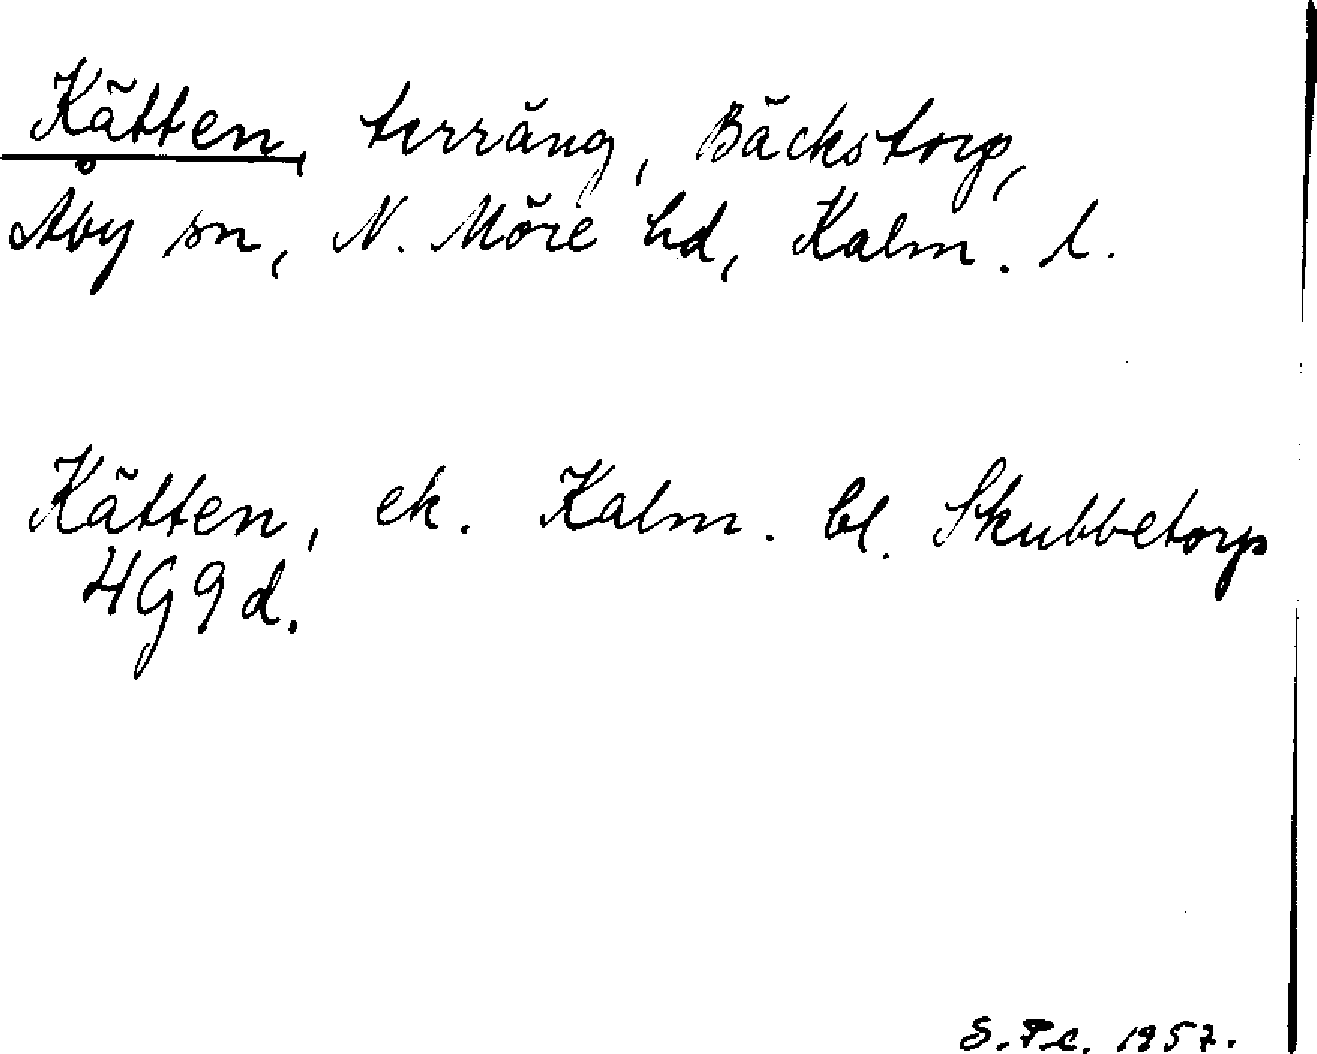 Kätten, terräng, Bäckstorp,
Åby sn, N. Möre hd, Kalm. l.
Kätten, ek. Kalm. bl. Skubbetorp
4G9d.
S.Pe. 1957.